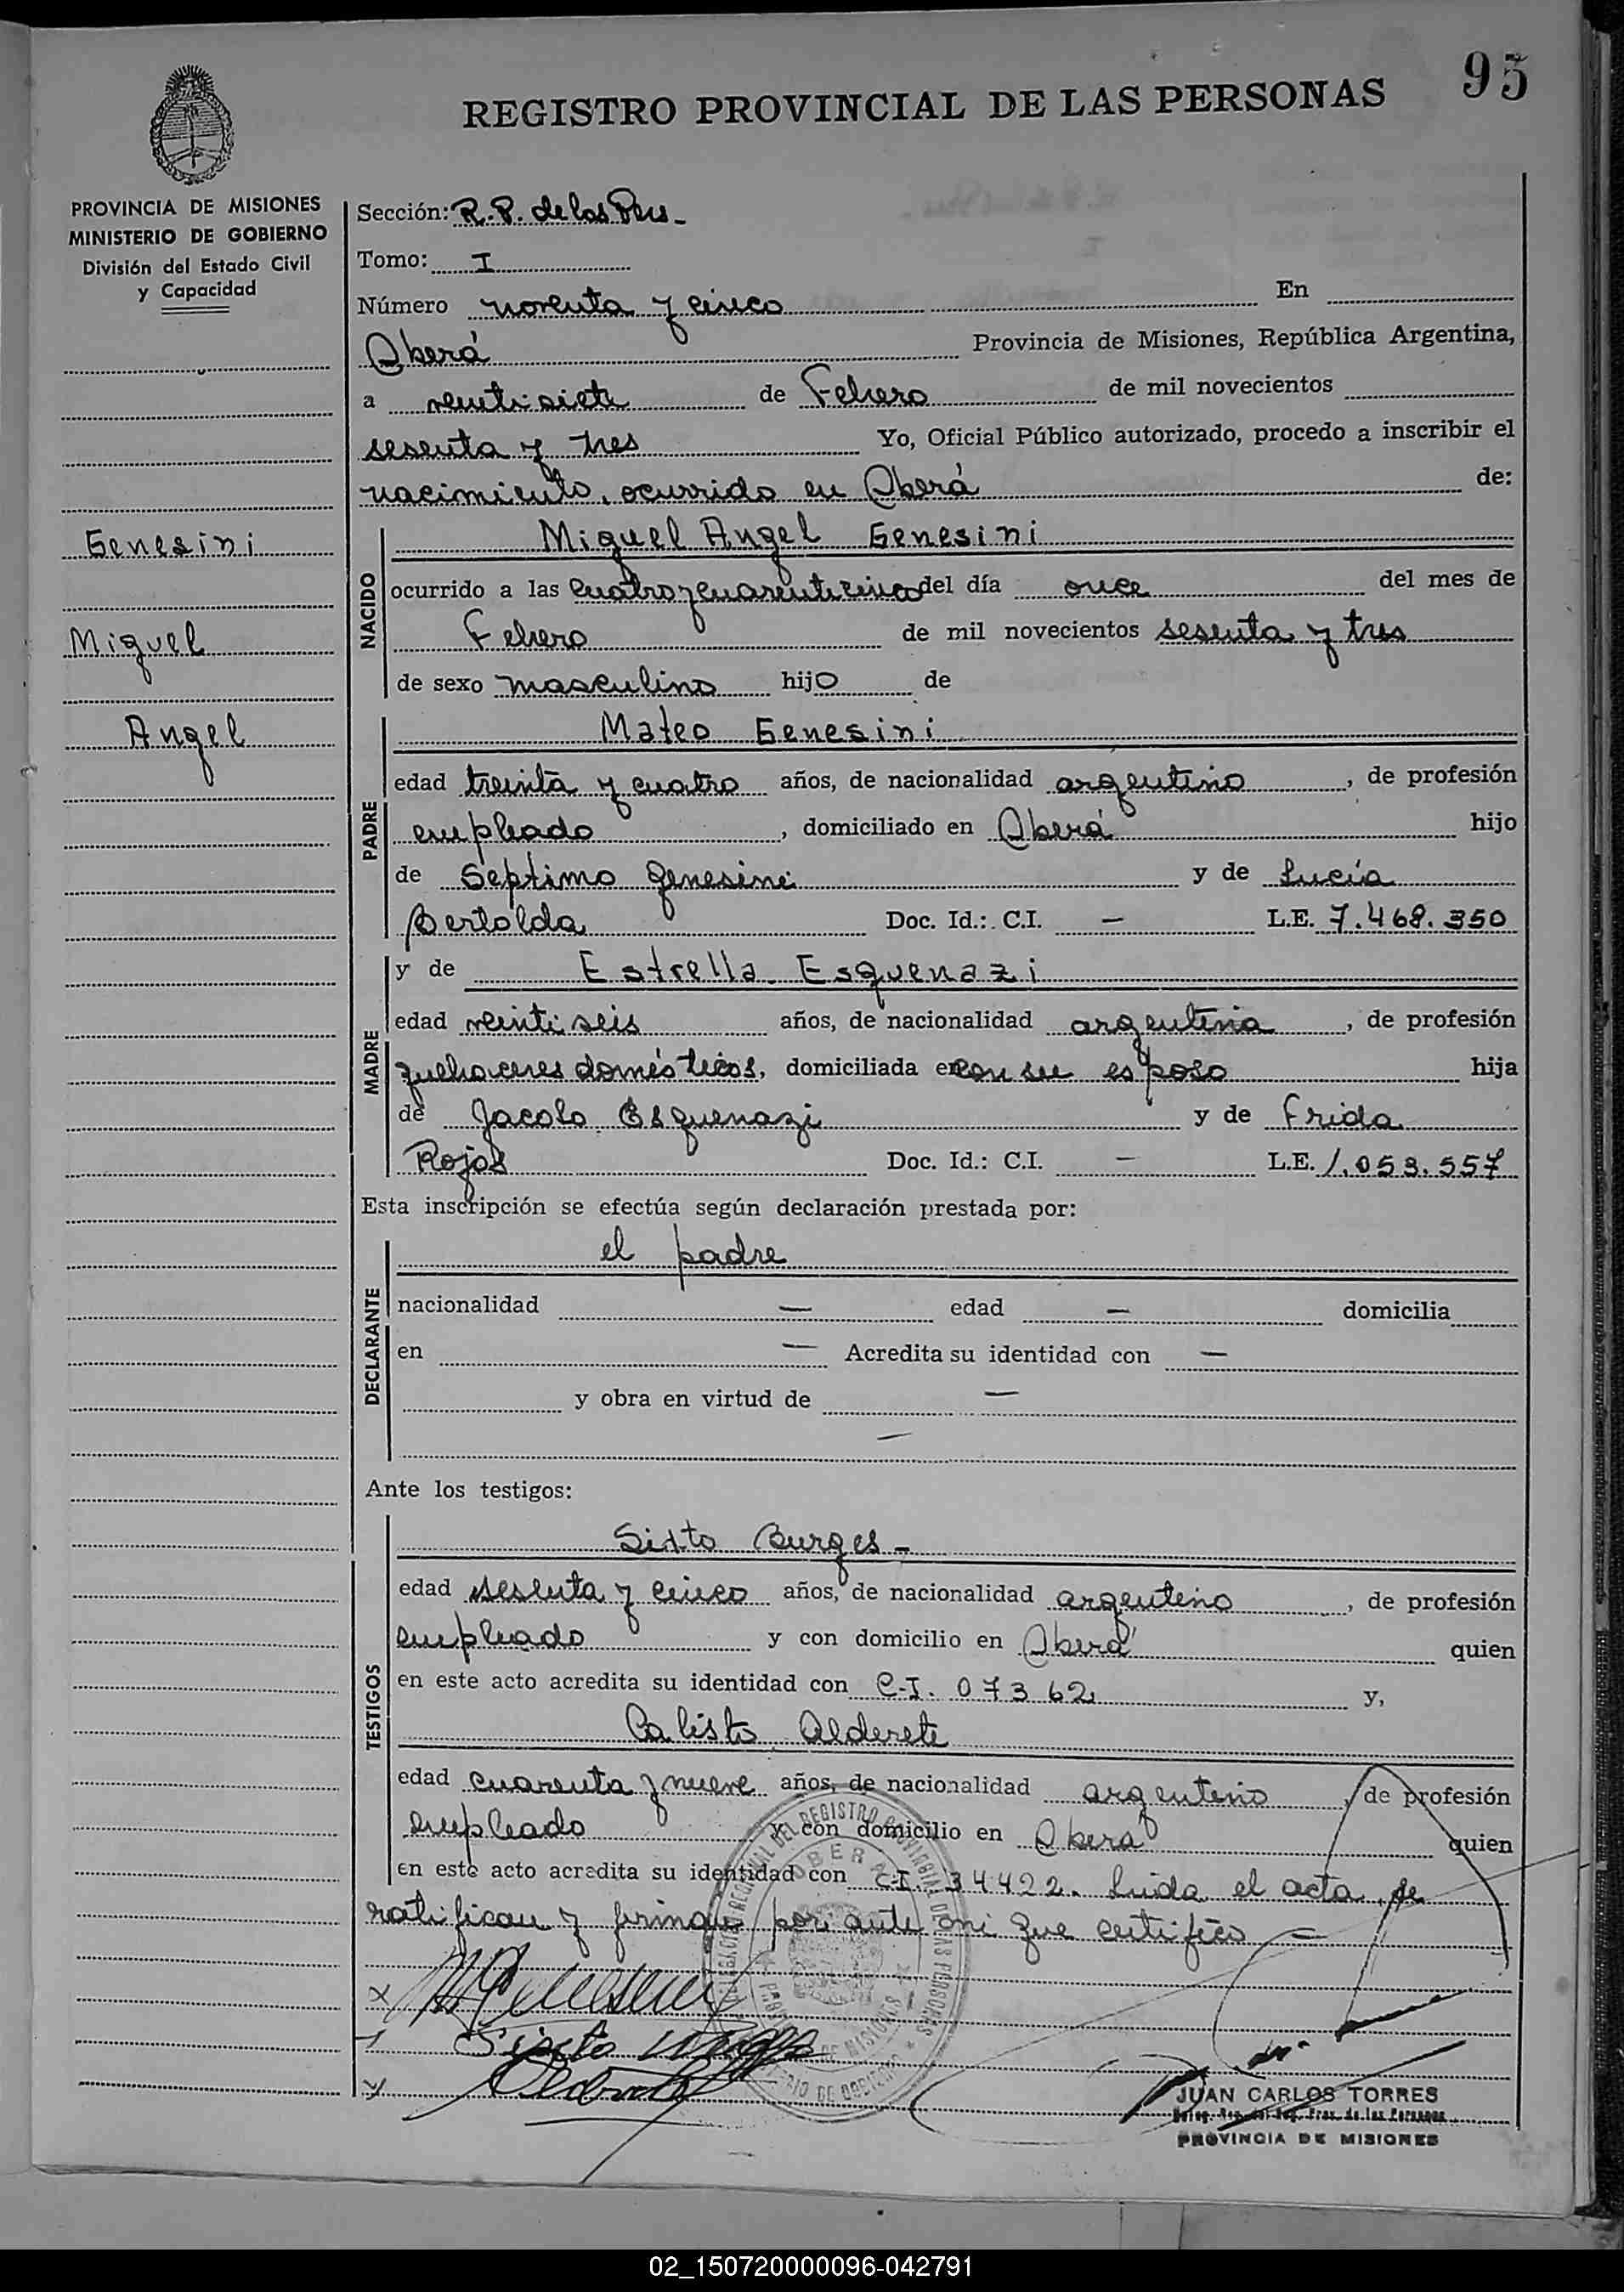 95
REGISTRO PROVINCIAL DE LAS PERSONAS
PROVINCIA DE MISIONES
MINISTERIO DE GOBIERNO
División del Estado Civil
y Capacidad
Genesini
Miguel
Angel
Sección: R.P. de las Pers -
Tomo: I
Número noventa y cinco En
Oberá Provincia de Misiones, República Argentina,
a veintisiete de Febrero de mil novecientos
sesenta y tres Yo, Oficial Público autorizado, procedo a inscribir el
nacimiento, ocurrido en Oberá de:
NACIDO
Miguel Angel Genesini
ocurrido a las cuatro y cuarenticinco del día once del mes de
Febrero de mil novecientos sesenta y tres
de sexo masculino hijo de
PADRE
Mateo Genesini
edad treinta y cuatro años, de nacionalidad argentino, de profesión
empleado, domiciliado en Oberá hijo
de Septimo Genesini y de Lucía
Bertolda Doc. Id.: C.I. — L.E. 7.468.350
MADRE
y de Estrella Esquenazi
edad veintiseis años, de nacionalidad argentina, de profesión
quehaceres domésticos, domiciliada en con su esposo hija
de Jacobo Esquenazi y de Frida
Rojas Doc. Id.: C.I. — L.E. 1.053.557
Esta inscripción se efectúa según declaración prestada por:
DECLARANTE
el padre
nacionalidad — edad — domicilia
en — Acredita su identidad con —
y obra en virtud de —
—
Ante los testigos:
TESTIGOS
Sixto Burges -
edad sesenta y cinco años, de nacionalidad argentino, de profesión
empleado y con domicilio en Oberá quien
en este acto acredita su identidad con C.I. 07362 y,
Calisto Alderete
edad cuarenta y nueve años, de nacionalidad argentino, de profesión
empleado y con domicilio en Oberá quien
en este acto acredita su identidad con C.I. 34422. Leida el acta, se
ratifican y firman por ante mi que certifico —
Sixto
OBERA
JUAN CARLOS TORRES
PROVINCIA DE MISIONES
02_150720000096-042791